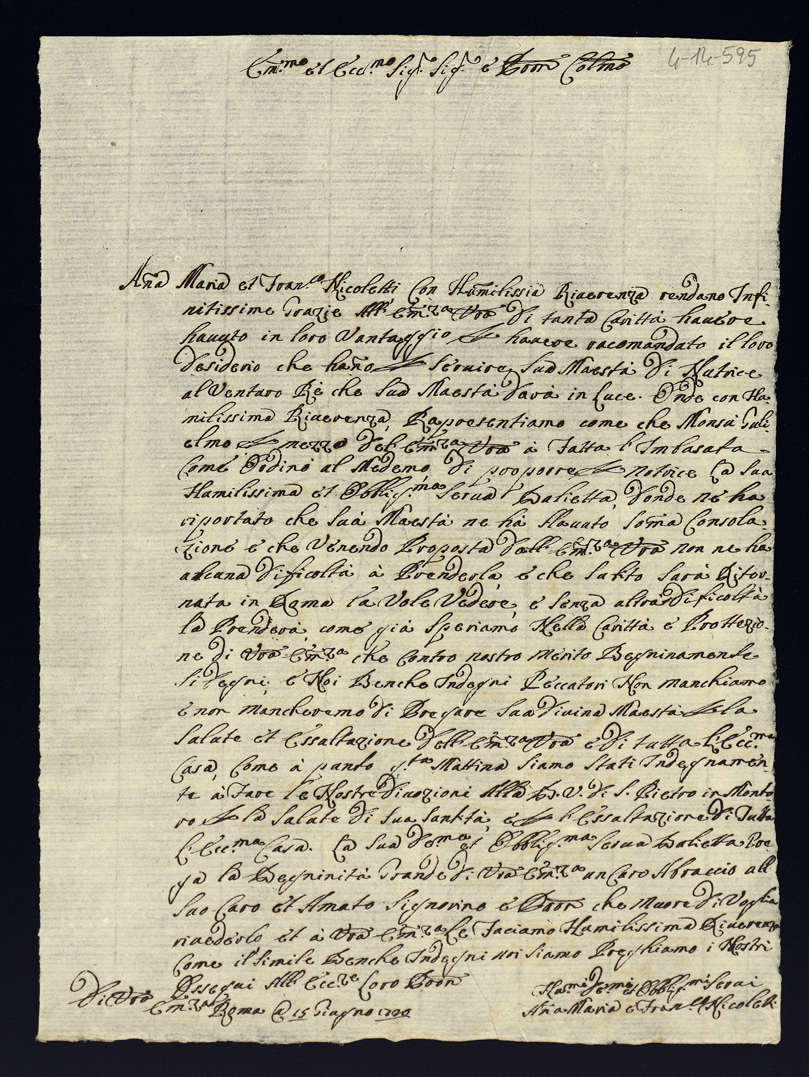 4-14-595
Em.mo et Ecc.mo Sig.r Sig.r e Pron Colmo
Aña Maria et Fran.ca Nicoletti Con Humilissia Riverenza rendano Infi-
nitissime Grazie All' Em.za Vra di tanta Carittà havere
havuto in loro Vantaggio havere racomandato il loro
desiderio che hano Servire Sua Maestà di Nutrice
al Venturo Rè che Sua Maestà darà in Luce. Onde con Hu-
milissima Riverenza Rapresentiamo come che Monsù Guli-
elmo mezzo dell' Em.za Vra à Fatta l'Imbasata
Come Ordinò al Medemo di proporre notrice La Sua
Humilissima et Obblig.ma Serva Dalietta, donde ne ha
riportato che Suà Maestà ne hà Hauuto soma Consola-
zione e che Venendo Proposta dall' Em.za Vra non ne ha
alcuna dificoltà à Prenderla e che Subito sarà Ritor-
nata in Roma la Vole Vedere, e Senza altra dificoltà
la Prenderà, come già Speriamo Nella Carittà e Prottezio-
ne di Vra Em.za che Contro nostro Merito Begninamente
Si degni. e Noi Benche Indegni Peccatori Non manchiamo
e non mancheremo di Pregare Sua divina Maestà la
Salute et Essaltazione dell' Em.za Vra e di tutta l'Ecc.ma
Casa, Come à punto q.ta Mattina Siamo Stati Indegnamen-
te à Fare le Nostre divozioni Alla B. V. di S. Pietro in Monto-
ro la Salute di Sua Santità, e l'Essaltazione di Tutta
l'Ecc.ma Casa. La Sua Dema et Obblig.ma Serva Dalietta Pre-
ga la Begninità Grande di Vra Em.za un Caro Abraccio all
Suo Caro et Amato Signorino e Pron che Muore di Voglia
rivederlo et à Vra Em.za Le Faciamo Humilissima Riverenza
Come il Simile Benche Indegni noi Siamo Preghiamo i Nostri
Ossequi All' Ecc.ze Loro Pron
Di Vra
Em.za Roma @ 15 Giugno 1720
Hu.mi Demi et Obblig.mi Servi
Aña Maria e Fran.co Nicoletti